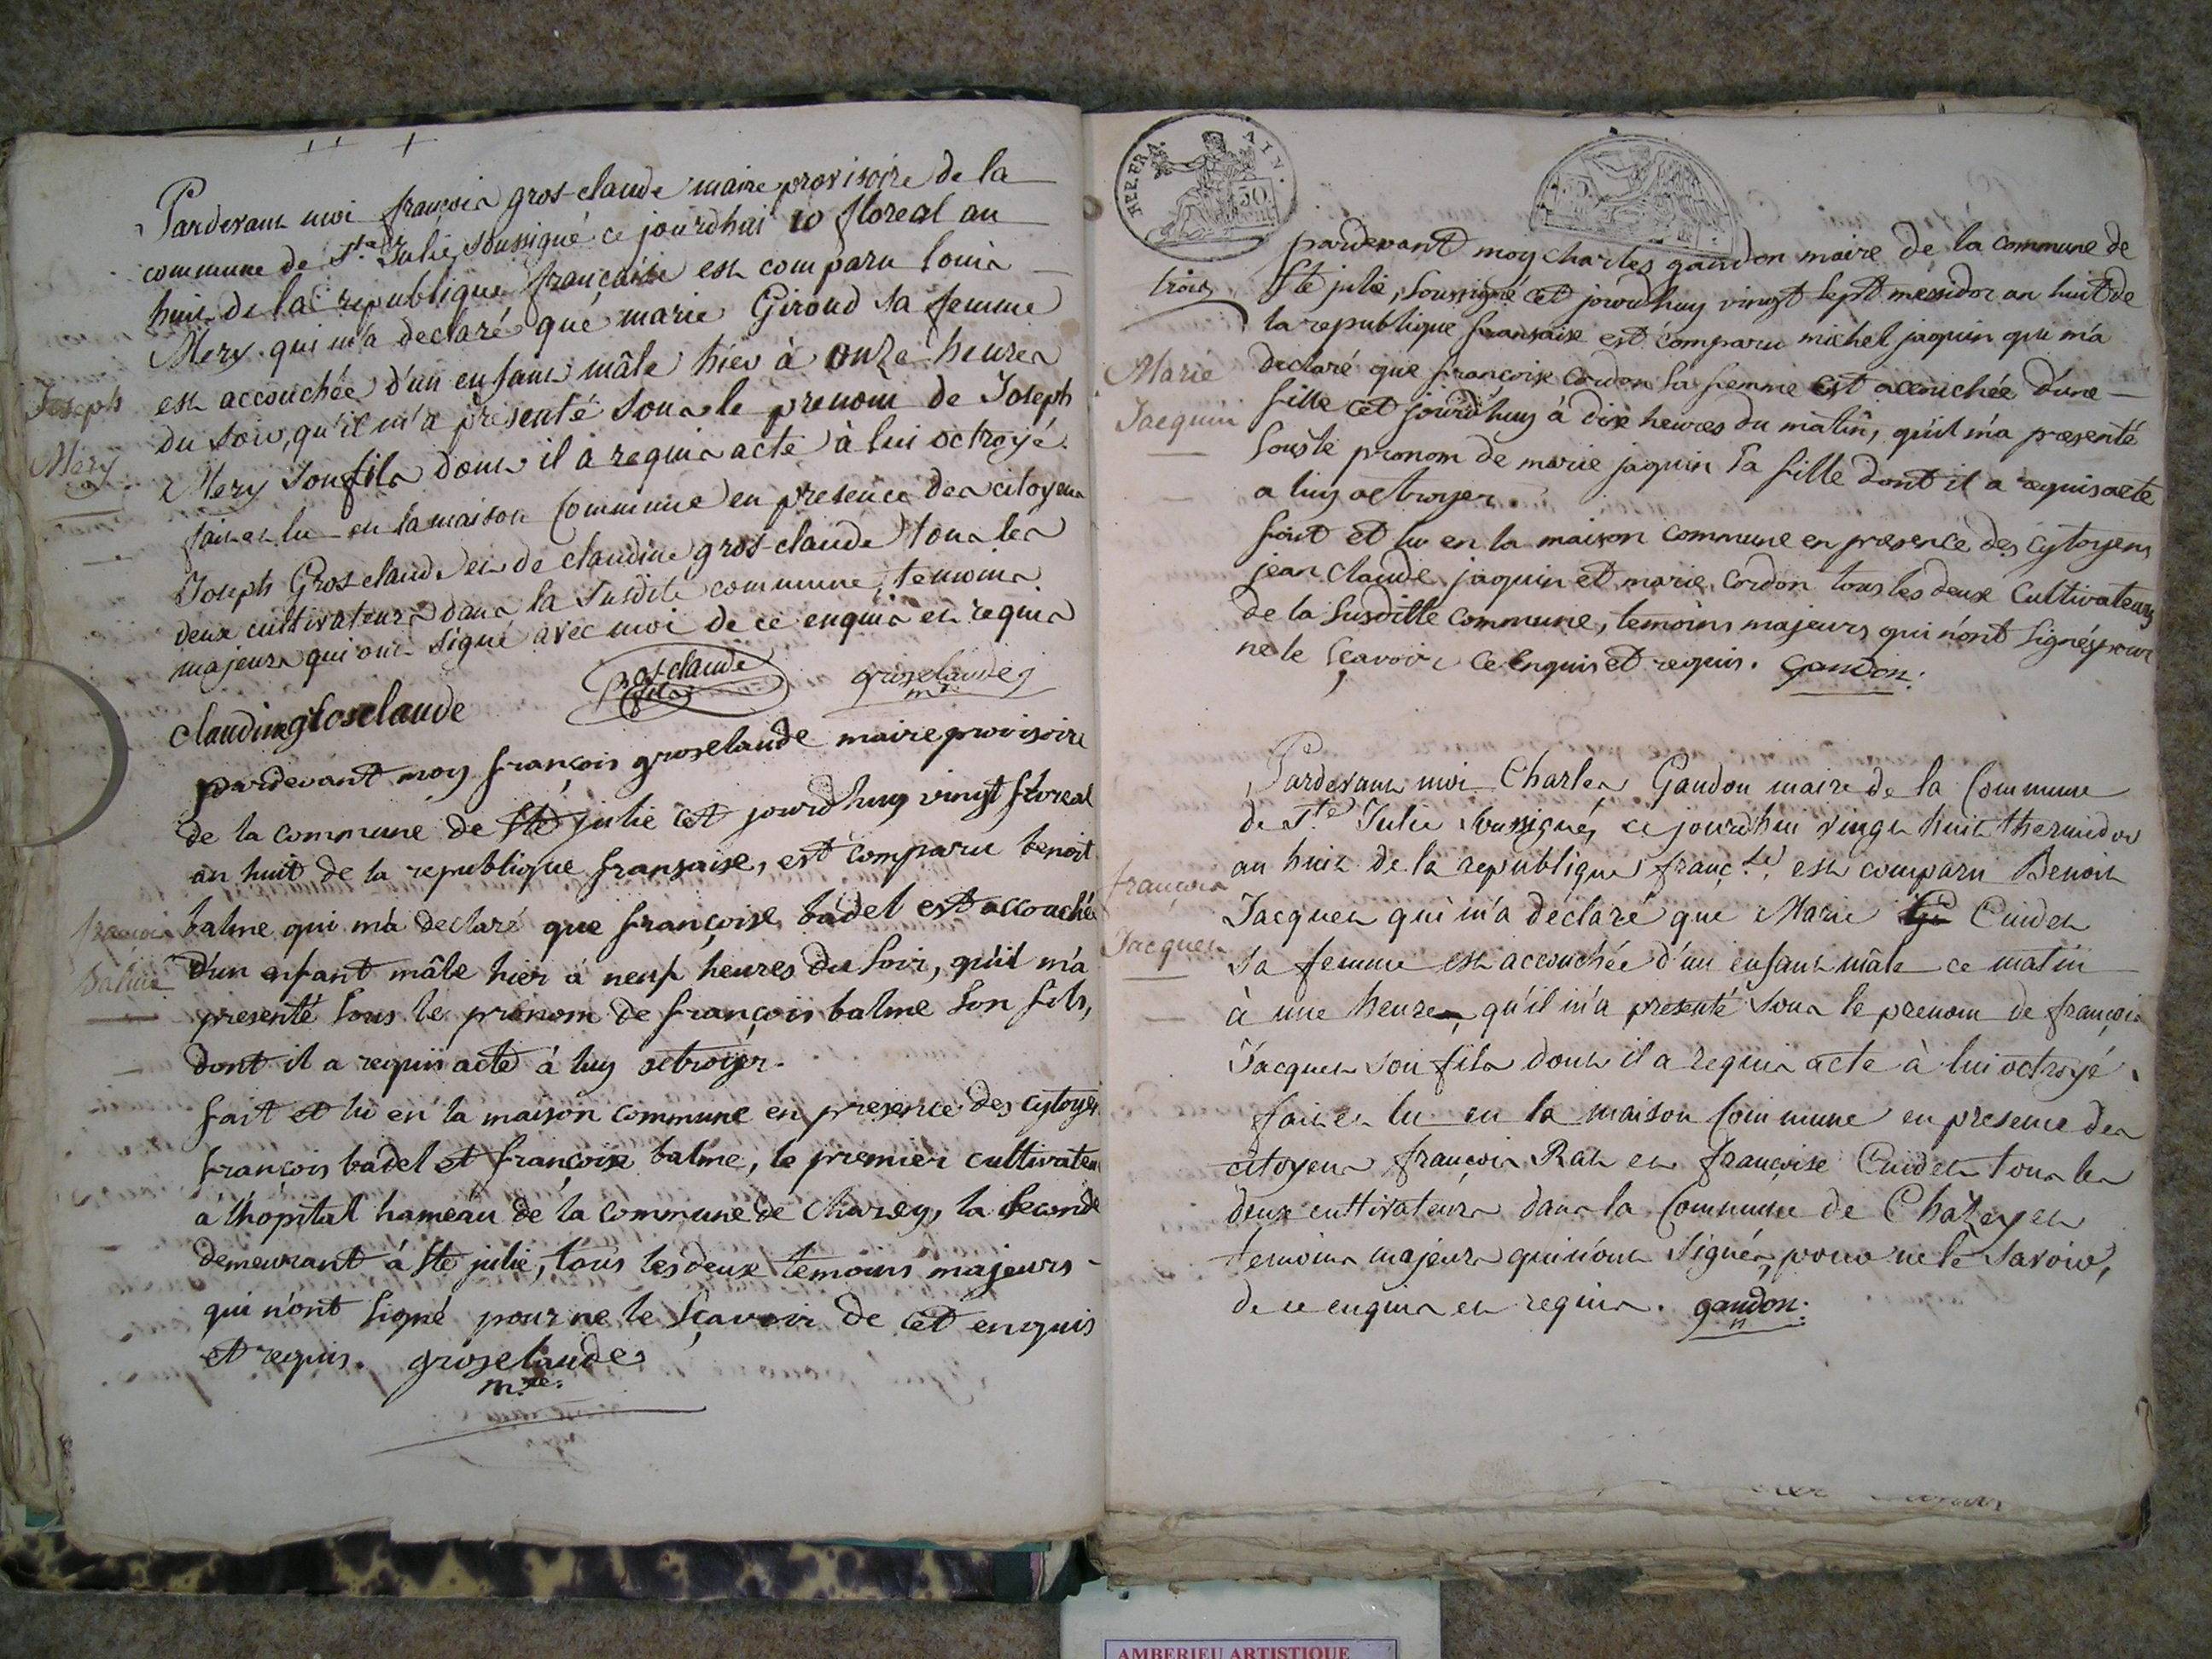 Pardevant moi françois gros-claude maire provisoire de la
commune de Ste. Julie, soussigné ce jourdhui 10 floreal an
huit de la republique française est comparu louis
Mery qui m'a declaré que marie Giroud sa femme
est accouchée d'un enfant mâle hier à onze heures
du soir, qu'il m'a présenté sous le prenom de Joseph
Mery son fils dont il a requis acte à lui octroyé.
fait et lu en la maison Commune en presence des citoyens
Joseph Gros-claude et de claudine gros-claude tous les
deux cultivateurs dans la susdite commune, temoins
majeurs qui ont signé avec moi de ce enquis et requis
Joseph
Mery
claudine groselaude
groselaude
mre
pardevant moy françois groselaude maire provisoire
de la commune de Ste julie cet jourdhuy vingt floreal
an huit de la republique fransaise, est comparu benoit
balme qui m'a declaré que françoise badel est accouchée
d'un enfant mâle hier à neuf heures du soir, qu'il m'a
presenté sous le prenom de françois balme son fils,
dont il a requis acte à luy octroyer.
fait et lu en la maison commune en presence des cytoyens
françois badel et françoise balme, le premier cultivateur
à l'hopital hameau de la commune de Chazey, la seconde
demeurant à Ste julie, tous les deux temoins majeurs
qui n'ont signé pour ne le sçavoir de cet enquis
et requis. groselaude
mre.
françois
balme
REP. FRA. AIN.
50
trois
pardevant moy charles gandon maire de la commune de
Ste julie, soussigné cet jourdhuy vingt sept messidor an huit de
la republique fransaise est comparu michel jaquin qui m'a
declaré que françoise cordon sa femme est accouchée d'une
fille cet jourdhuy à dix heures du matin, qu'il m'a presenté
sous le pronom de marie jaquin sa fille dont il a requis acte
a luy octroyer.
fait et lu en la maison commune en presence des cytoyens
jean claude jaquin et marie cordon tous les deux cultivateurs
de la susditte commune, temoins majeurs qui n'ont signés pour
ne le sçavoir ce enquis et requis. gandon.
Marie
Jacquin
Pardevant moi Charles Gandon maire de la Commune
de Ste Julie soussigné, ce jourdhui vingt huit thermidor
an huit de la republique franç.se est comparu Benoit
Jacques qui m'a déclaré que Marie Cuidet
sa femme est accouchée d'un enfant mâle ce matin
à une heure, qu'il m'a presenté sous le prenom de françois
Jacques son fils dont il a requis acte à lui octroyé.
fait et lu en la maison Commune en presence des
citoyens françois Rat et françoise Cuidet tous les
deux cultivateurs dans la Commune de Chazey et
temoins majeurs qui n'ont signés, pour ne le savoir,
de ce enquis et requis. gandon.
françois
Jacques
AMBERIEU ARTISTIQUE